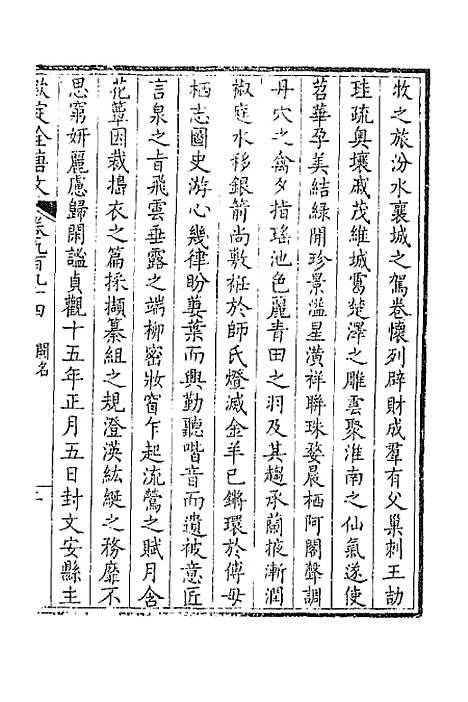 牧之旅汾水襄城之駕卷懷列辟財成羣有父巢刺王劼
珪疏奥壤戚茂維城霭楚澤之雕雲聚淮南之仙氣遂使
苕華孕美結緑開珍景溢星潢祥聯珠婺晨栖阿閣聲調
丹穴之禽夕指瑶池色麗青田之羽及其趨承蘭掖漸潤
椒庭水移銀箭尚敷袵於師氏燈滅金羊已鏘環於傅母
栖志圖史游心幾律盼萋葉而興勤聽喈音而遺被意匠
言泉之旨飛雲垂露之端柳密妝窗乍起流鶯之賦月含
花蕈因裁擣衣之篇採擷纂組之規澄漠紘綖之務靡不
思窮妍麗慮歸閑謐貞觀十五年正月五日封文安縣主
欽定全唐文 卷九百九十四 闕名